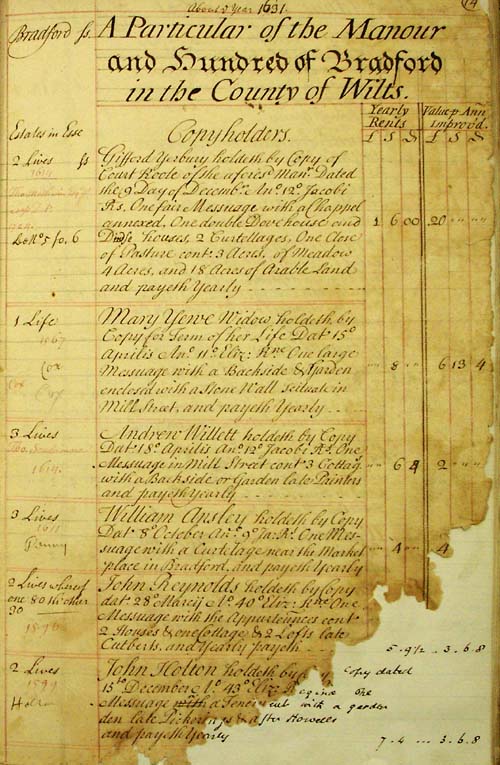 About yͤ Year 1631.
14
Bradford ss. A Particular of the Manour
and Hundred of Bradford
in the County of Wilts.
Yearly Rents
Value p Ann Improvd.
£ S D £ S D
Estates in Esse
Copyholders.
2 Lives ss Gifford Yerbury holdeth by Copy of
1614 Court Roole of the aforesd Manr. Dated
the 9 Day of Decembr. Ano. 12o Jacobi
Rs. One fair Messuage with a Chappel
annexed, One double Dove house and 1 6 00 20 " " " "
No 5 fo. 6 houses, 2 Curtollages, One Close
of Pasture cont: 3 Acres, of Meadow
4 Acres, and 18 Acres of Arable Land
and payeth Yearly
1 Life Mary Yewe Widow holdeth by
1567 Copy for Term of her Life Dat 15o
Cox Aprilis Ano. 11o Eliz: Rne One large
Messuage with a Backside & Garden " 8 " 6 13 4
Cox enclosed with a Stone Wall scituate in
Mill Street, and payeth Yearly
3 Lives Andrew Willett holdeth by Copy
Dat 18o Aprilis Ano. 12o Jacobi Rs. One
1614. Messuage in Mill Street cont 3 Cottag " 6 8 2 " " " "
with a Backside or Garden late Painters
and payeth Yearly
3 Lives William Ansley holdeth by Copy
1611 Dat 8o October Ano. 9o Ja: Rs. One Mes-
Penny suage with a Curtelage near the Market " 4 " 4
place in Bradford, and payeth Yearly
2 Lives whereof John Reynolds holdeth by Copy
one 80 th other dat 28o Marcij Ao. 40o Eliz: Rne One
30 Messuage with the Appurtenences cont
1598 2 Houses & one Cottage & 2 Lofts late
Culberts, and Yearly payeth 5. 9½ .. 3. 6. 8
2 Lives John Holton holdeth by Copy dated
1599 15to December Ao. 43o Eliz: Regina One
Messuage with a Tenement with a garden
den late Pickerings & after Howells
and payeth Yearly 7. 4 ... 3. 6. 8